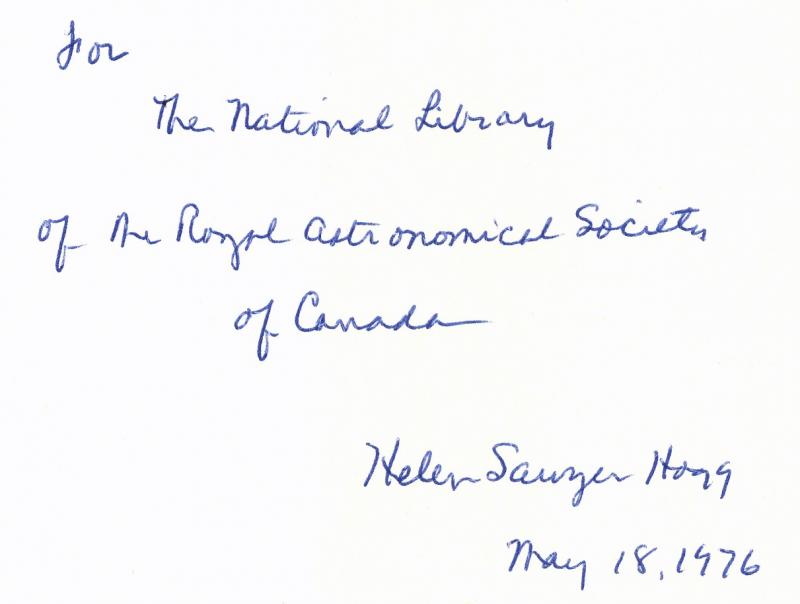 For
The National Library
of the Royal Astronomical Society
of Canada
Helen Sawyer Hogg
May 18, 1976